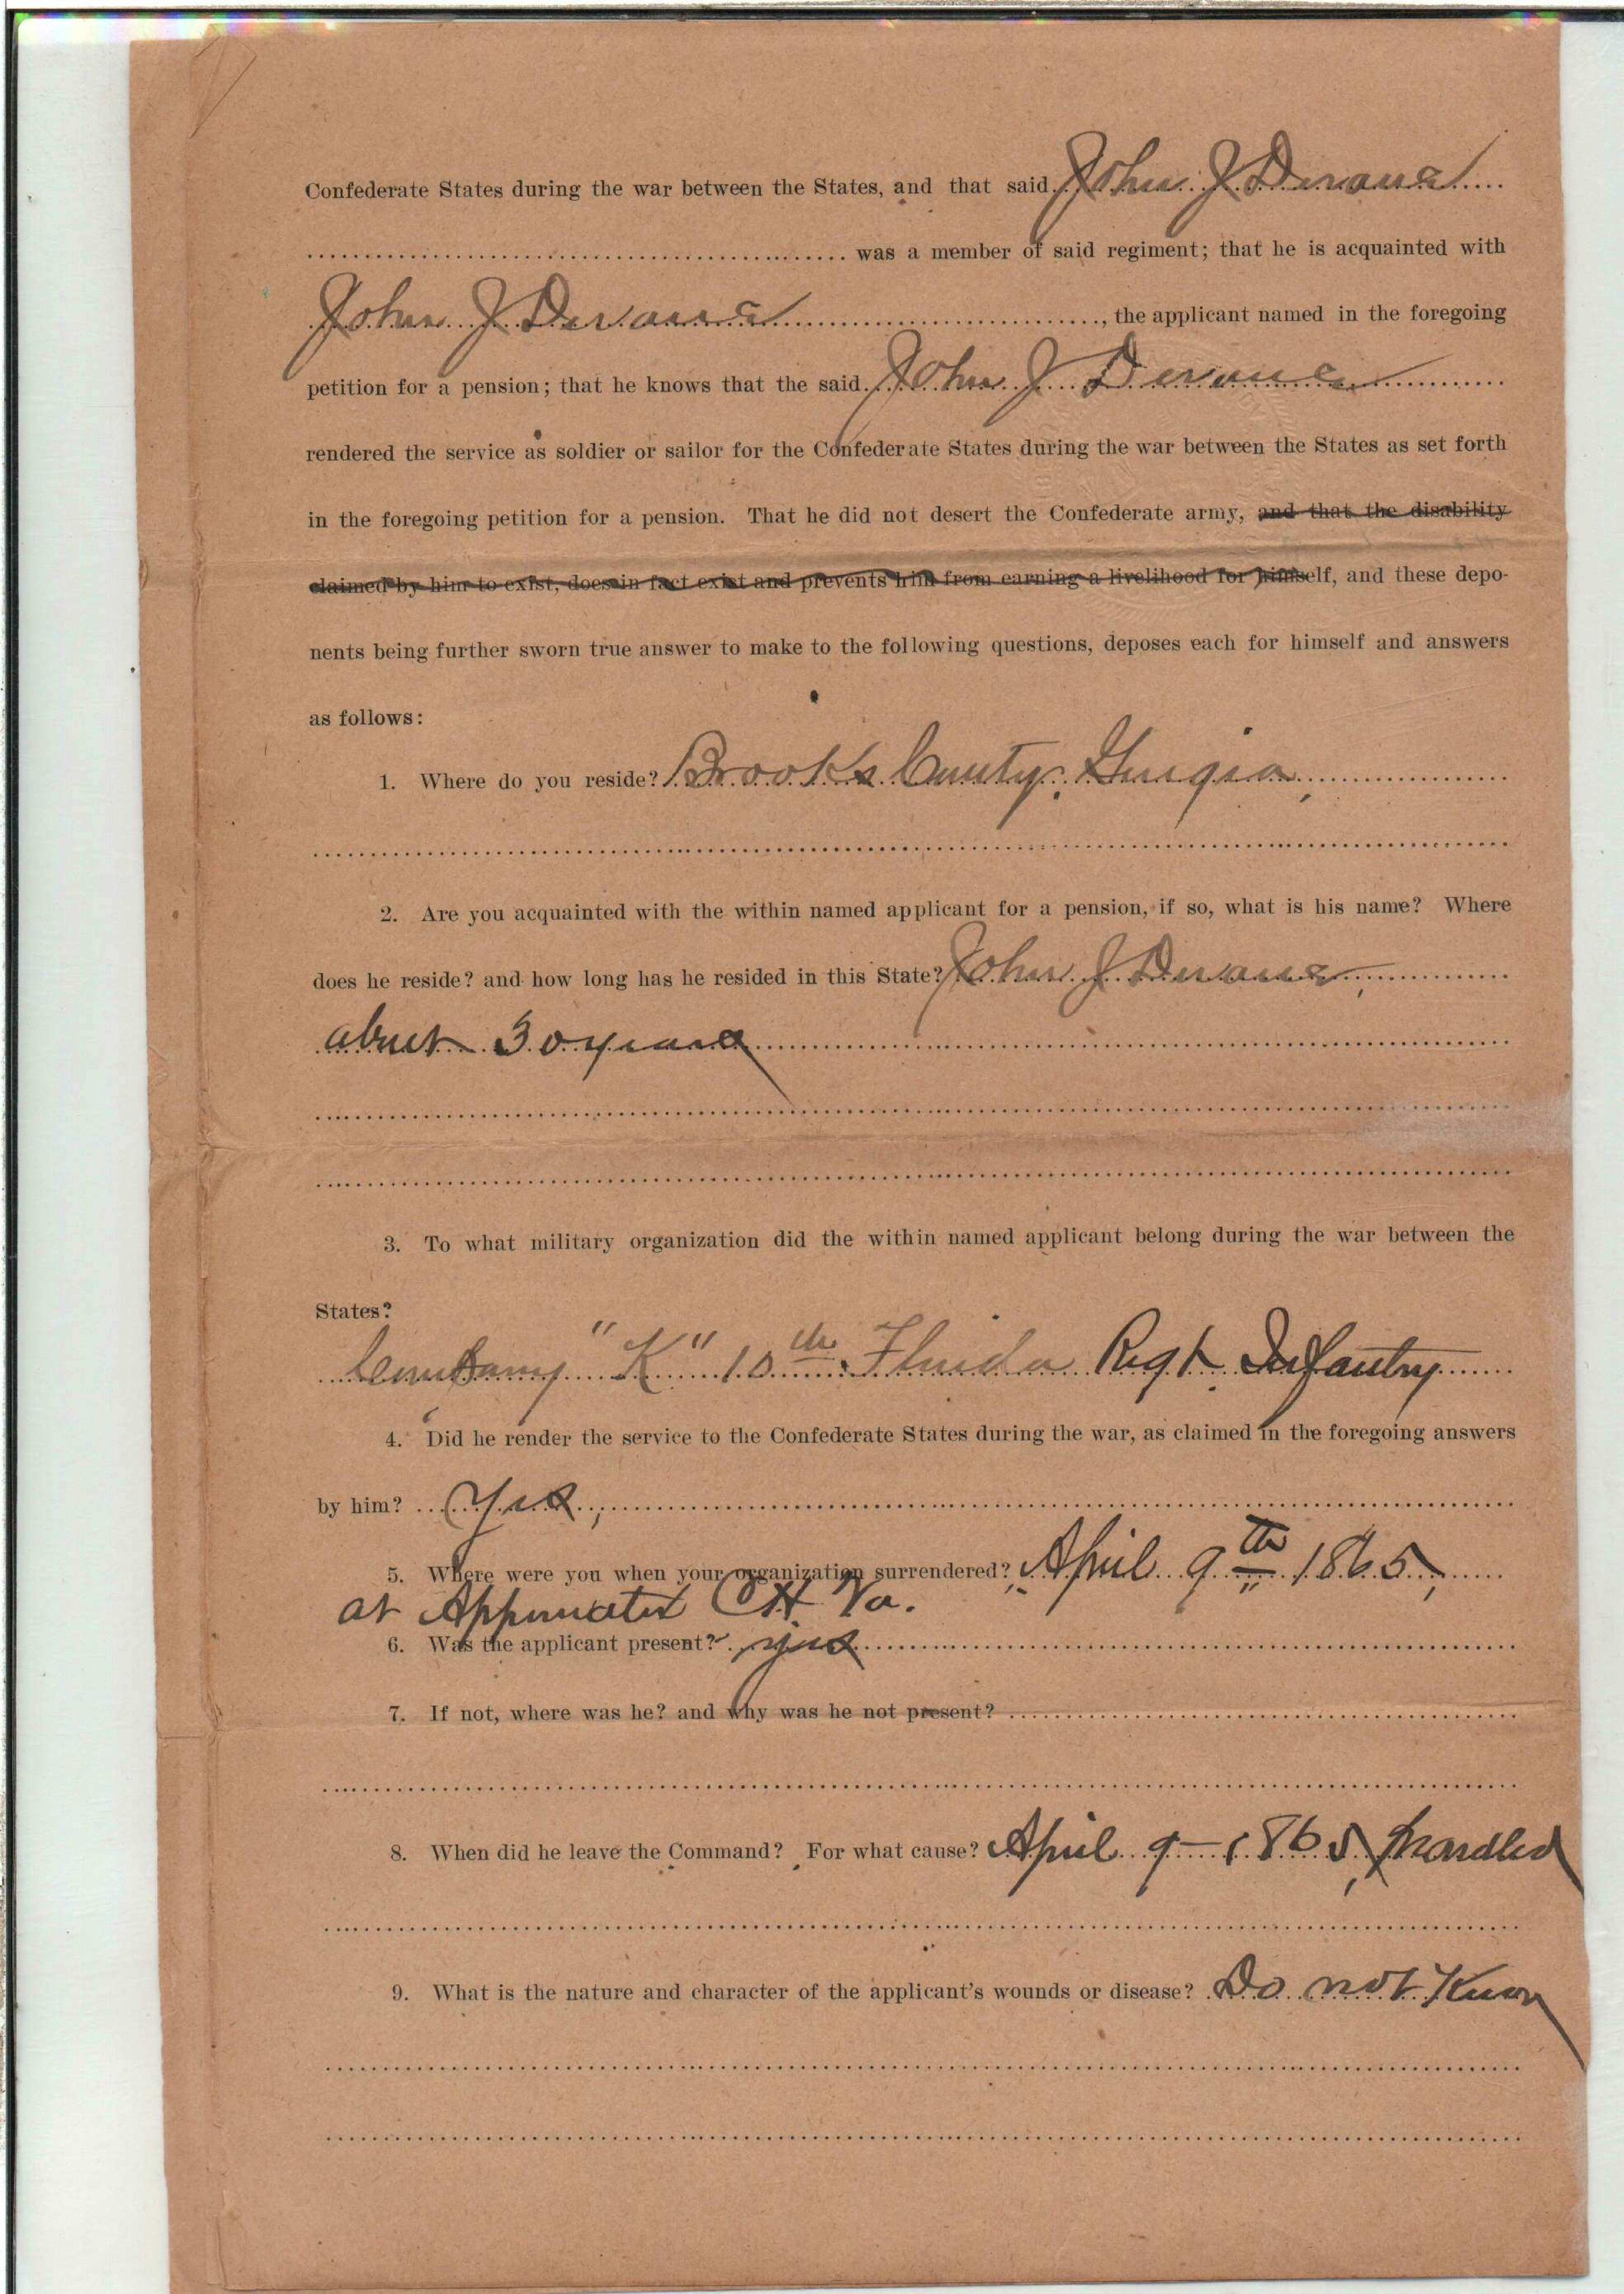 Confederate States during the war between the States, and that said John J Devane
was a member of said regiment; that he is acquainted with
John J Devane, the applicant named in the foregoing
petition for a pension; that he knows that the said John J Devane
rendered the service as soldier or sailor for the Confederate States during the war between the States as set forth
in the foregoing petition for a pension. That he did not desert the Confederate army, and that the disability
claimed by him to exist, does in fact exist and prevents him from earning a livelihood for himself, and these depo-
nents being further sworn true answer to make to the following questions, deposes each for himself and answers
as follows:
1. Where do you reside? Brooks County, Georgia
2. Are you acquainted with the within named applicant for a pension, if so, what is his name? Where
does he reside? and how long has he resided in this State? John J Devane,
about 30 years
3. To what military organization did the within named applicant belong during the war between the
States?
Company "K" 10th Florida Regt. Infantry
4. Did he render the service to the Confederate States during the war, as claimed in the foregoing answers
by him? Yes,
5. Where were you when your organization surrendered? April 9th 1865,
at Appomatox CH Va.
6. Was the applicant present? yes
7. If not, where was he? and why was he not present?
8. When did he leave the Command? For what cause? April 9-1865,
9. What is the nature and character of the applicant's wounds or disease? Do not Know